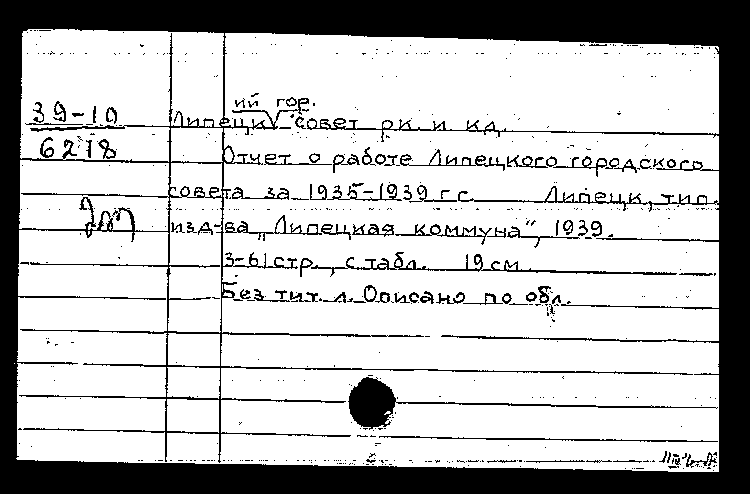 39-10
6218
ий гор.
Липецк совет рк. и кд.
Отчет о работе Липецкого городского
совета за 1935-1939 г.г. Липецк, тип.
изд-ва „Липецкая коммуна", 1939.
3-61 стр., с табл. 19 см.
Без тит. л. Описано по обл.